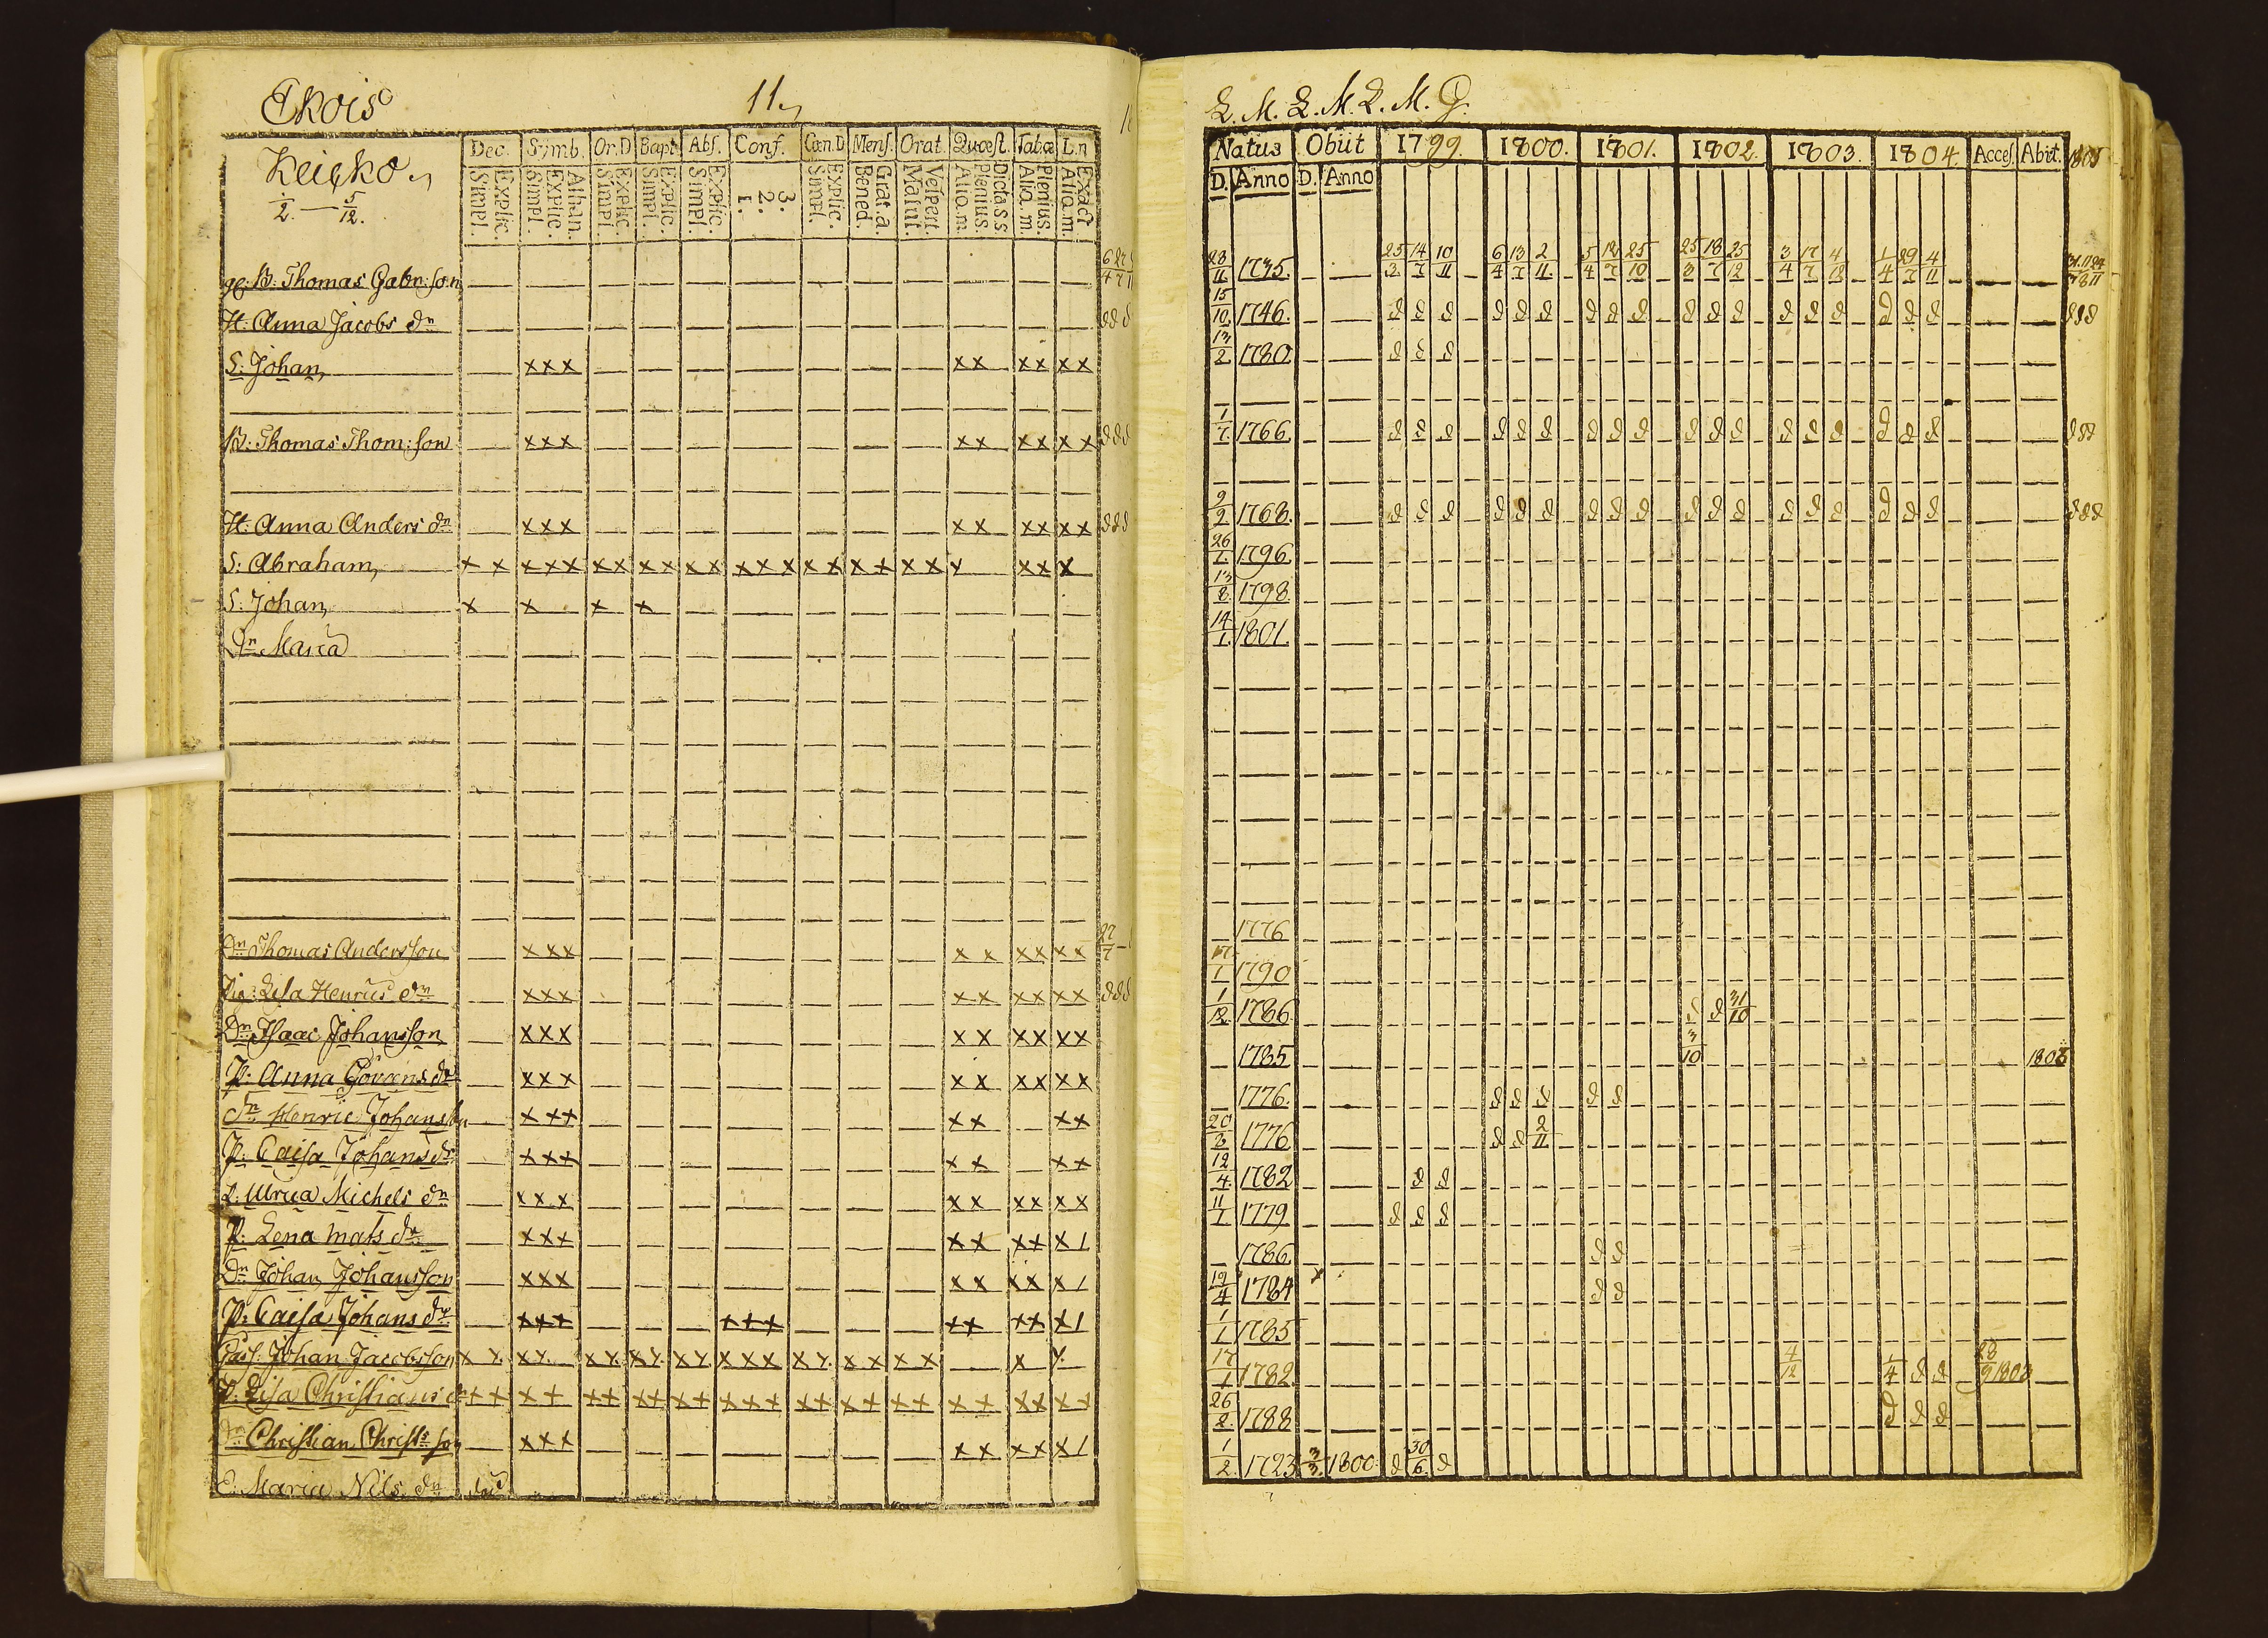 Ekois
11.
Keicko
1/2 — 5/12.
Dec. Symb. Or.D Bapt. Abs. Conf. Cœn.D Mens. Orat. Quœst. Tabœ L.n
Explic. Simpl.
Athan. Explic. Simpl.
Explic. Simpl.
Explic. Simpl.
Explic. Simpl.
3. 2. 1.
Explic. Simpl.
Grat. a. Bened.
Vespert. Matut.
Dicta s.s. Plenius. Aliq.m.
Plenius. Aliq.m.
Exact Aliq.m.
B: Thomas Gabr:son
H: Anna Jacobs dr
S: Johan xxx xx xx xx
B: Thomas Thom:son xxx xx xx xx
H: Anna Anders dr xxx xx xx xx
S: Abraham x x xxx xx xx xx xxx xx xx xx x xxx x
S: Johan x x x x
Dr Maria
Dn Thomas Andersson xxx xx xx xx
Pig: Lisa Henrics dr xxx xx xx xx
Dn Isaac Johansson xxx xx xx xx
P: Anna Görans dr xxx xx xx xx
Dn Henric Johansson xxx xx xx
P: Caisa Johans dr xxx xx xx
L: Ulrica Michels dr xxx xx xx xx
P: Lena Mats dr xxx xx xx x1
Dn Johan Johansson xxx xx xx x1
P: Caisa Johans dr xxx xxx xx xx x1
Johan Jacobsson x x xx xx xx xx xxx xx xx xx x x
P: Lisa Christians dr xx xx xx xx xx xxx xx xx xx xx xx xx
Dn Christian Christ:son xxx xx xx x1
E: Maria Nils dr
L. M. L. M. L. M. G.
Natus Obiit 1799. 1800. 1801. 1802. 1803. 1804. Acces. Abit. 1805
D. Anno D. Anno
23/11 1735. 25/3 14/7 10/11 6/4 13/7 2/11 5/4 12/7 25/10 25/3 18/7 25/12 3/4 17/7 4/12 1/4 29/7 4/11
15/10 1746.
13/2 1780.
1/7 1766.
9/2 1768.
26/1 1796.
13/8 1798.
14/1 1801.
1776
17/1 1790
1/12 1786 31/10
1785 3/10 1803
1776.
20/3 1776 2/11
12/4 1782
11/7 1779
1786
19/4 1784
1/1 1785
17/1 1782 4/12 1/4 28/9 1803
26/2 1788
1/2 1723 3/3 1800 30/6